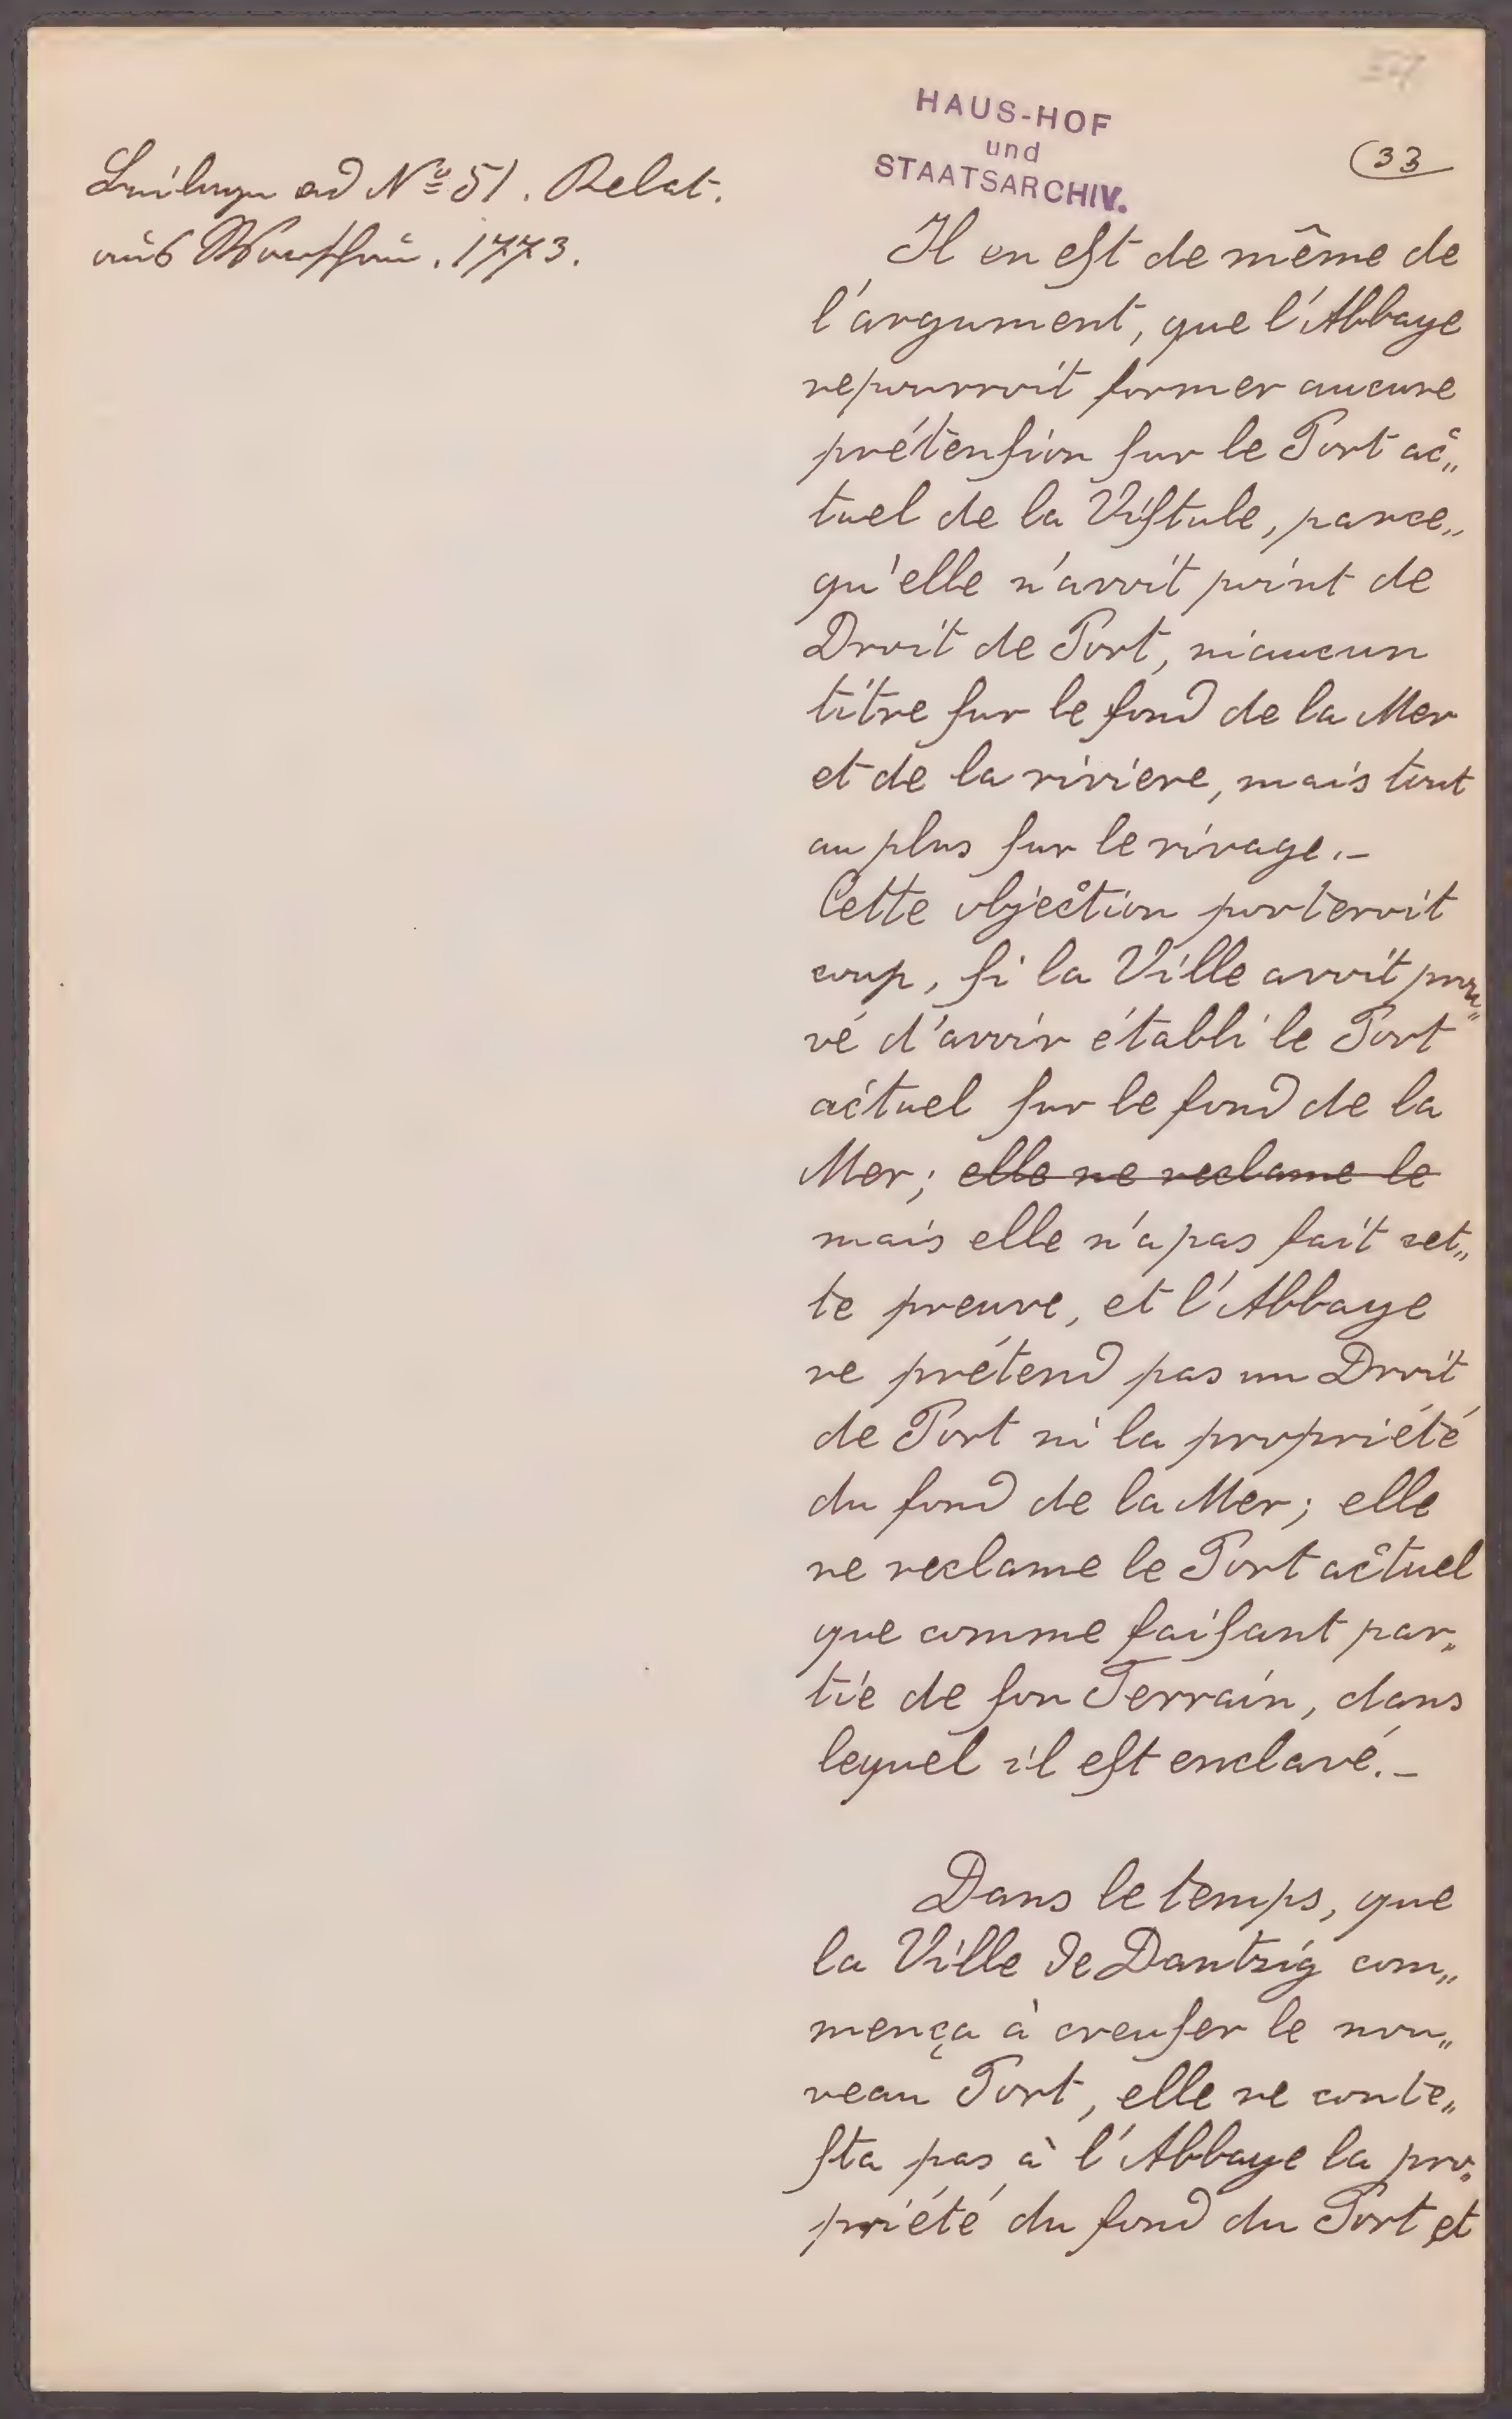 HAUS-HOF
und
STAATSARCHIV.
33
Beilagen ad Nº 51. Relat.
aus Warschau. 1773.
Il en est de même de
l'argument, que l'Abbaye
ne pourroit former aucune
prétension sur le Port ac„
tuel de la Vistule, parce„
qu'elle n'avoit point de
Droit de Port, ni aucun
titre sur le fond de la Mer
et de la riviere, mais tout
au plus sur le rivage.–
Cette objection porteroit
coup, si la Ville avoit prou„
vé d'avoir établi le Port
actuel sur le fond de la
Mer; elle ne reclame le
mais elle n'a pas fait cet„
te preuve, et l'Abbaye
ne prétend pas un Droit
de Port ni la propriété
du fond de la Mer; elle
ne reclame le Port actuel
que comme faisant par„
tie de son Terrain, dans
lequel il est enclavé.–
Dans le temps, que
la Ville de Dantzig com„
mença à creuser le nou„
veau Port, elle ne conte„
sta pas à l'Abbaye la pro„
priété du fond du Port et